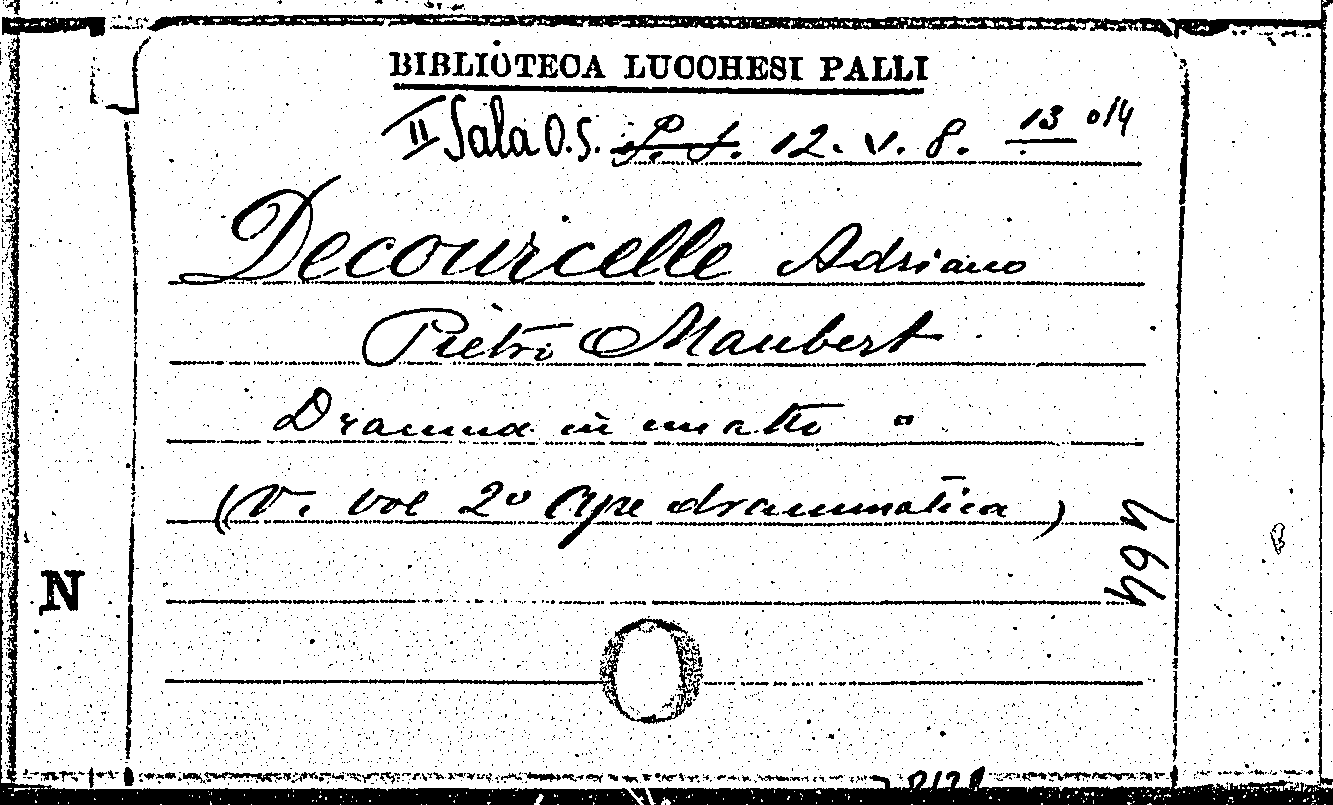 BIBLIOTECA LUCCHESI PALLI
II Sala O.S. 12. V. 8. 13 o/4
Decourcelle Adriano
Pietro Maubert
Dramma in un atto
(V. vol 2º Ape drammatica)
N